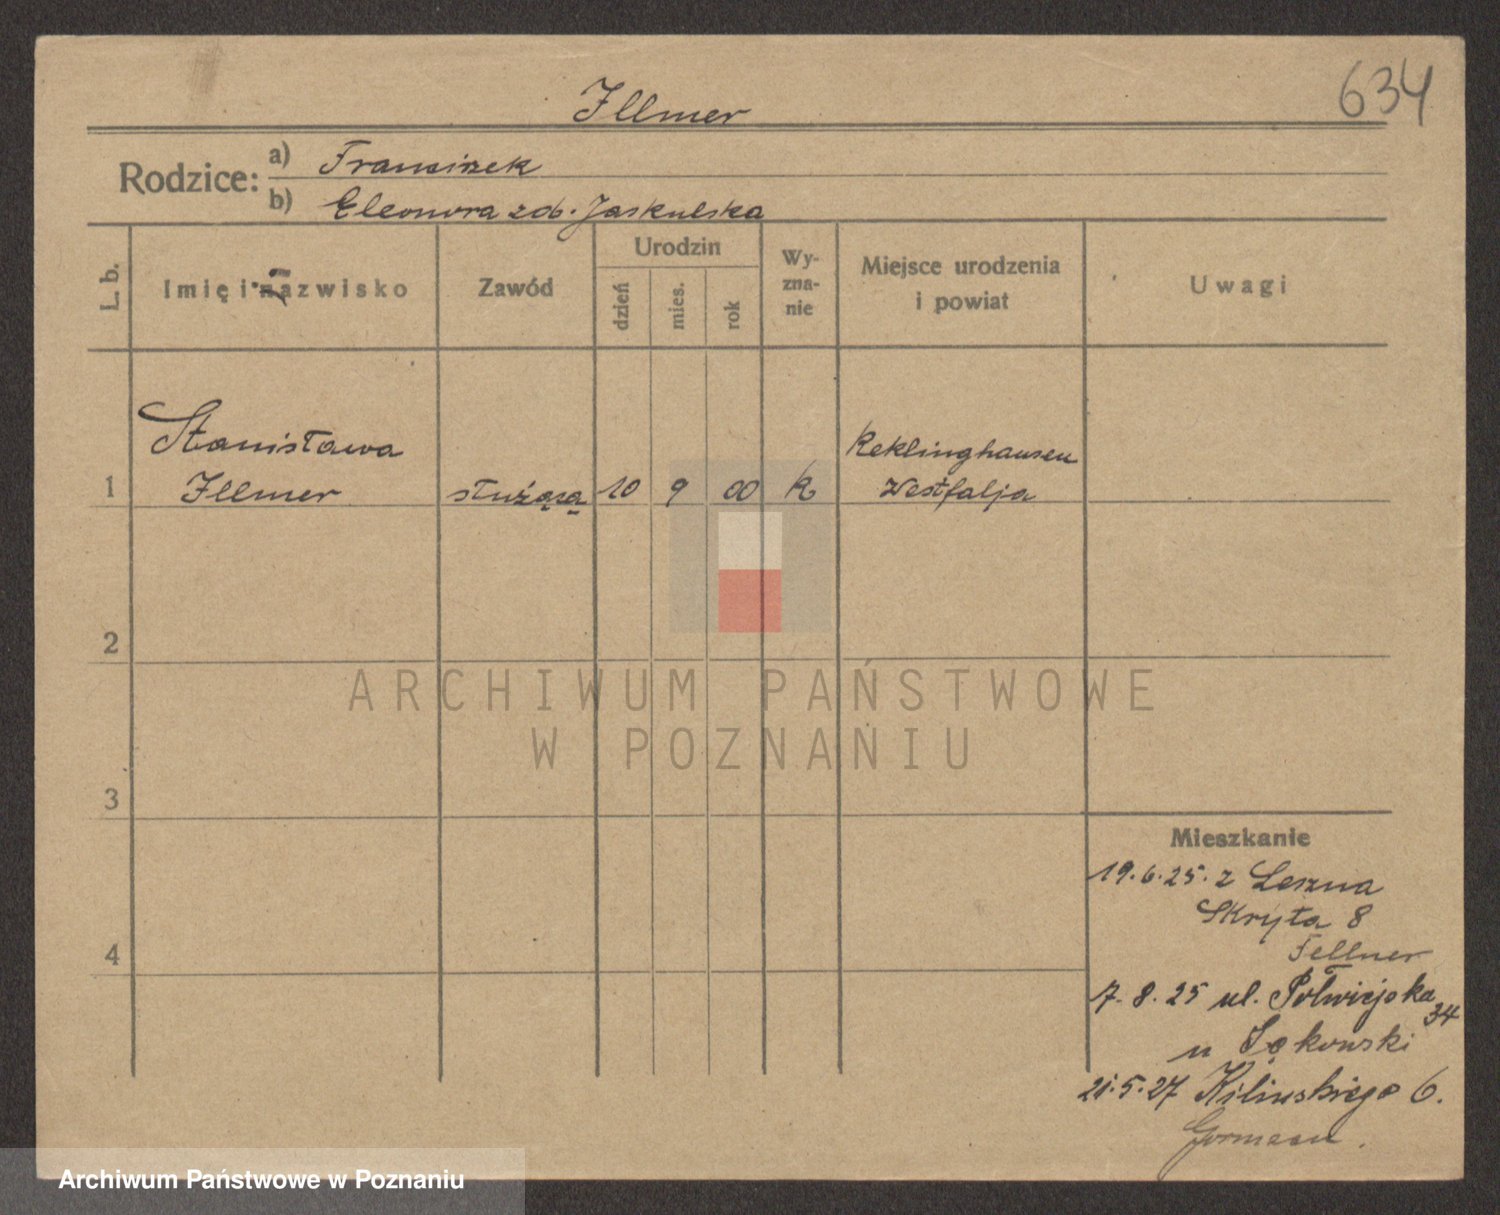 634
Illmer
Rodzice: a) Franciszek
b) Eleonora zob. Jaskulska
L. b. Imię i nazwisko Zawód Urodzin dzień mies. rok Wy-zna-nie Miejsce urodzenia i powiat Uwagi
Stanisława Reklinghausen
1 Illmer służąca 10 9 00 k Westfalja
2
ARCHIWUM PAŃSTWOWE
W POZNANIU
3
Mieszkanie
19.6.25. z Leszna
Skryta 8
Fellner
4
7.8.25 ul. Półwiejska 34
u Sękowski
21.5.27 Kilinskiego 6.
Archiwum Państwowe w Poznaniu